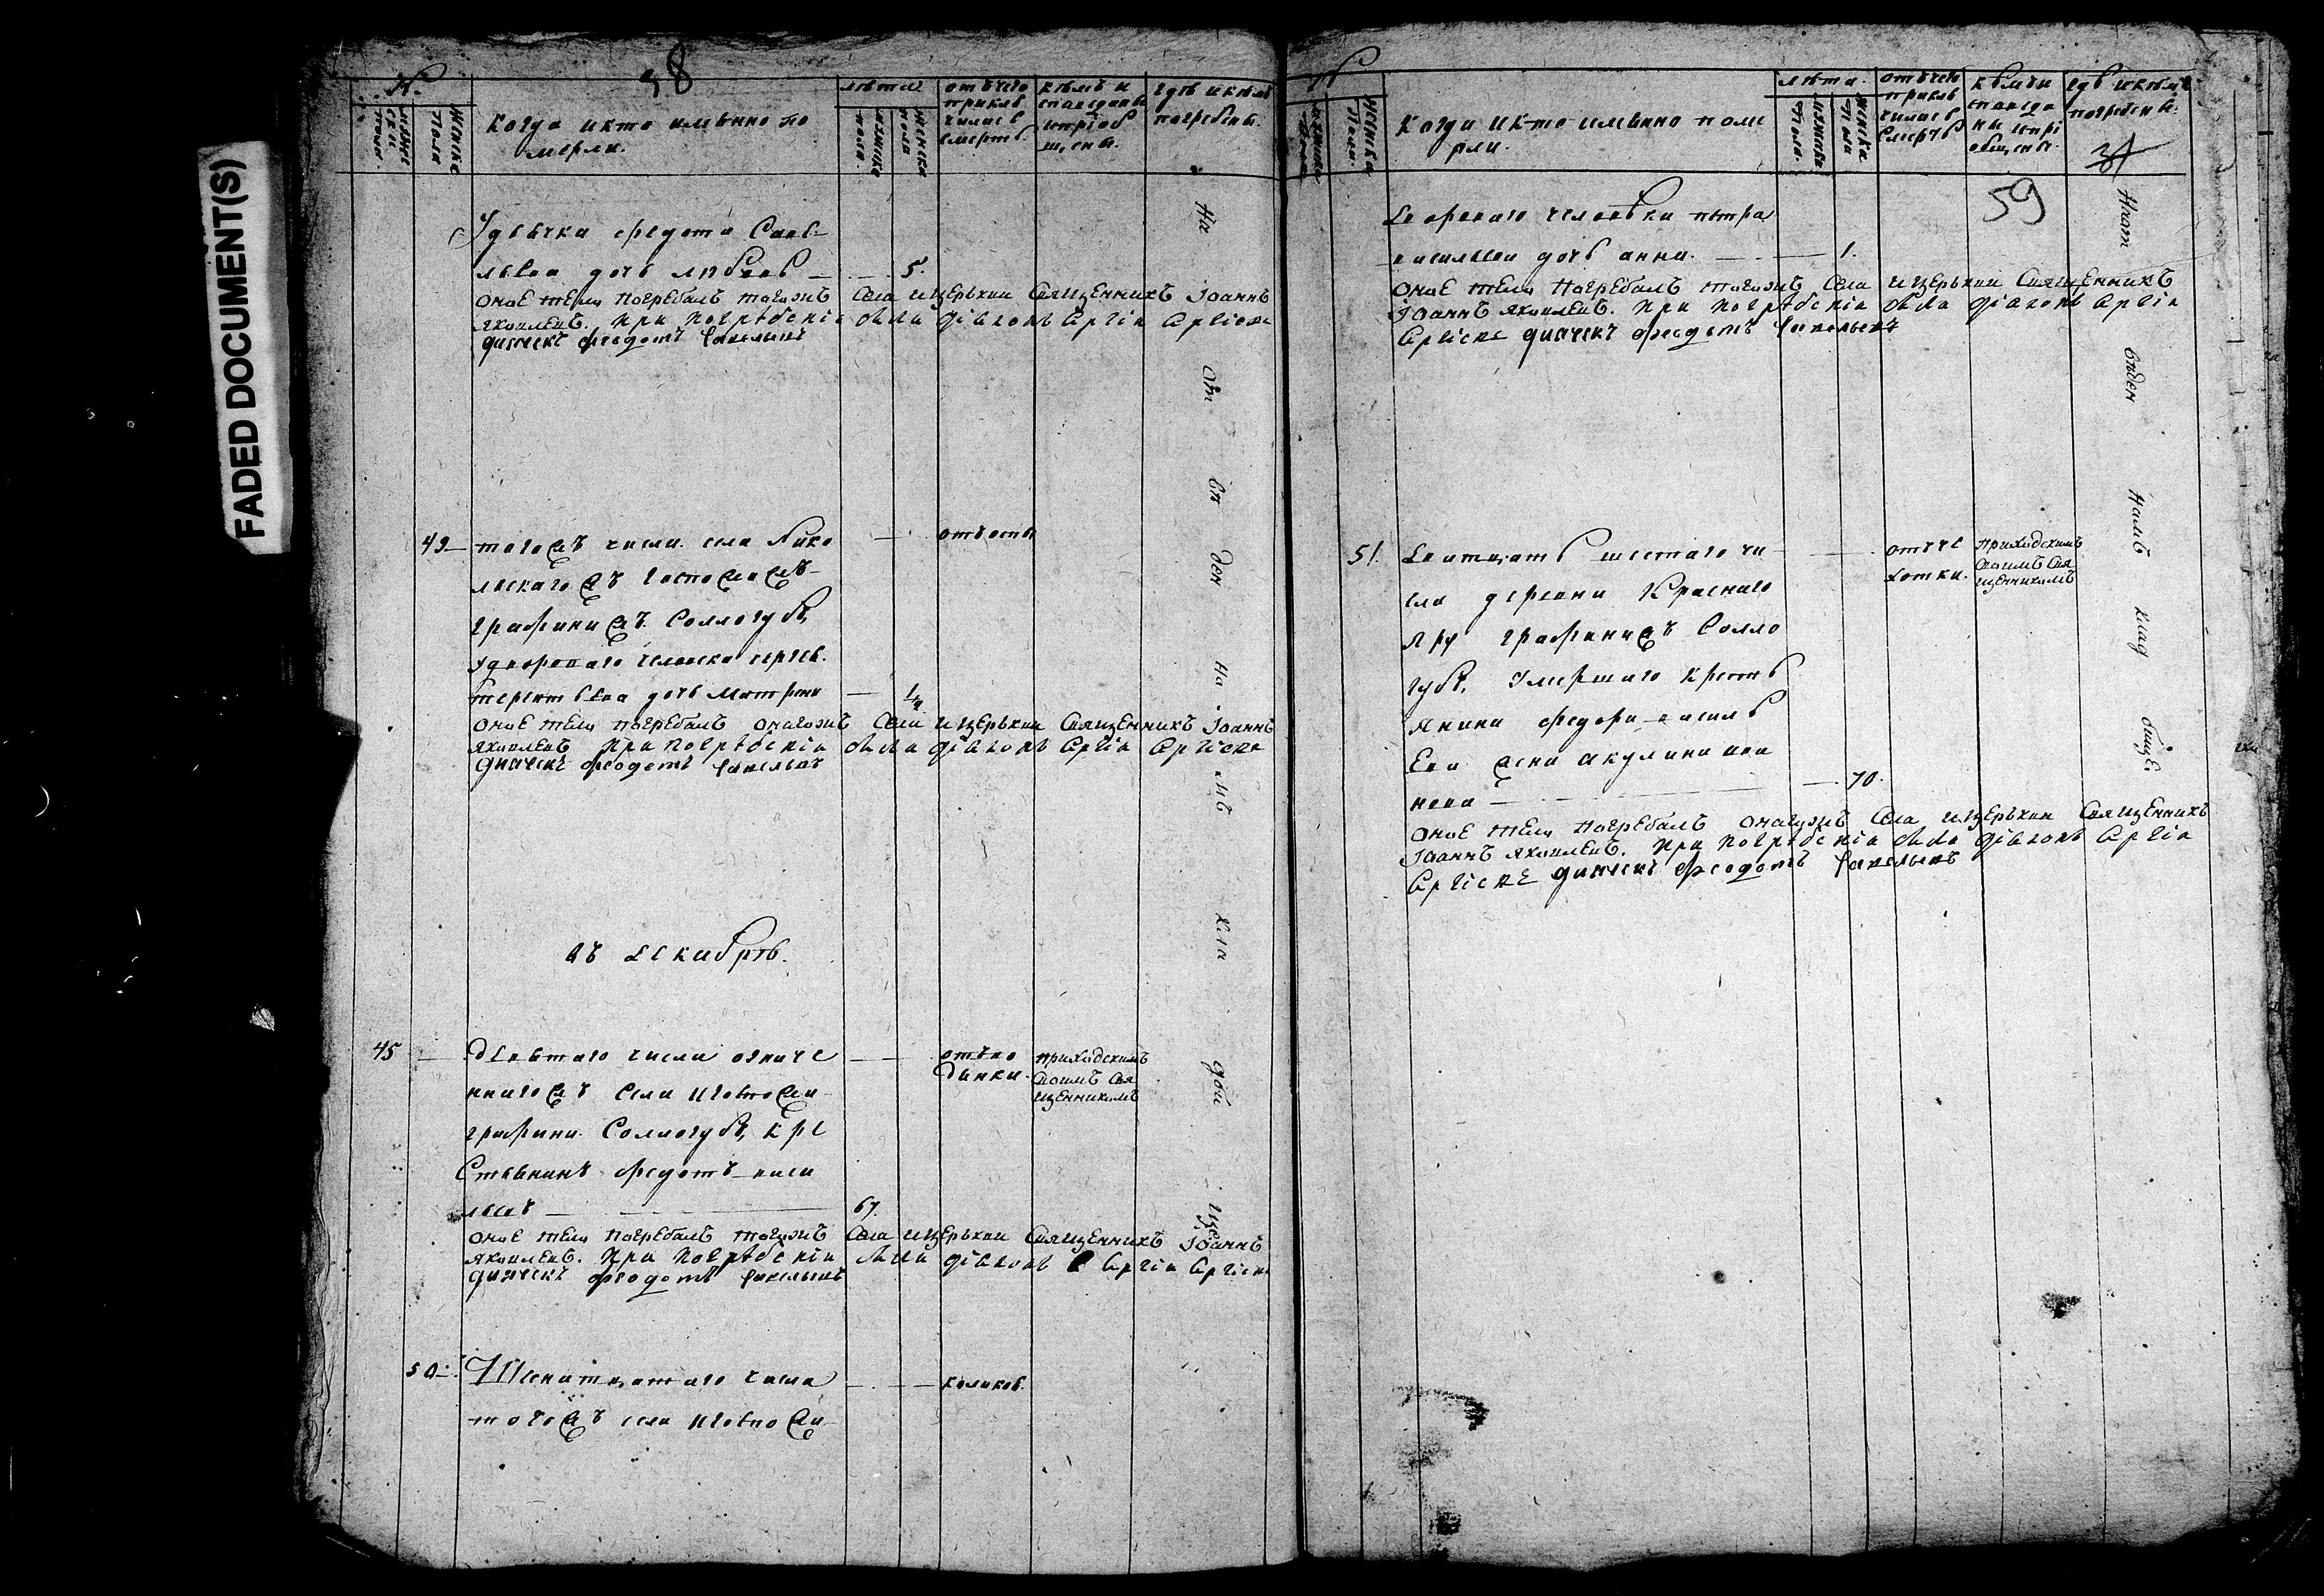 FADED DOCUMENT(S)
58
№
мужеска пола.
женска пола
когда и кто именно по
мерли.
лѣта
мужеска пола.
женска пола
отъ чего
приклю
чилась
смерть.
кѣмъ и
споведаны
и пріоб
щены.
гдѣ и кемъ
погребены.
дочь
5.
оное тело погребалъ тогожъ села и церькви священникъ Iоаннъ
яковлевъ. при погребенiи были дiаконъ Сергiи Сергiевъ
дьячекъ федотъ савельевъ
49.
тогожъ числа села Нико
льскагожъ госпожижъ
графинижъ Соллогубъ,
дворового человека
дочь матрена
1/4
отъ оспы
оное тело погребалъ оногожъ села и церькви священникъ Iоаннъ
яковлевъ при погребенiи были дiаконъ Сергiи Сергiевъ
дьячекъ феодотъ савельевъ
въ декабрѣ.
45
девятаго числа означе
ннагожъ села и госпожи
графини Соллогубъ, кре
стьянинъ федотъ васи
льевъ
67.
приходскимъ
своимъ свя
щенникомъ
оное тело погребалъ тогожъ села и церькви священникъ Iоаннъ
яковлевъ. при погребенiи были дiаконъ Сергiи Сергiевъ
дьячекъ феодотъ савельевъ
50.
числа
тогожъ села и госпожи
На от ве ден на мъ кла дби ще
№
мужеска пола
женска пола.
когда и кто именно поме
рли.
лѣта.
мужеска пола.
женска пола
отъ чего
приклю
чилась
смерть
кѣмъ и
споведа
ны и прi
общены.
гдѣ и кѣмъ
погребены.
59
дворового человека петра
васильева дочь анна.
1.
оное тело погребалъ тогожъ села и церькви священникъ
Iоаннъ яковлевъ. при погребенiи были дiаконъ Сергiи
Сергiевъ дьячекъ феодотъ савельевъ
51.
дватцать шестаго чи
сла деревни Краснаго
яру графинижъ Солло
губъ, умершаго кресть
янина федора василь
ева жена акулина ива
нова
70.
отъ че
хотки.
приходскимъ
своимъ свя
щенникомъ
оное тело погребалъ оногожъ села и церькви священникъ
Iоаннъ яковлевъ. при погребенiи были дiаконъ Сергiи
Сергiевъ дьячекъ феодотъ савельевъ
Наот веден намъ клад бище